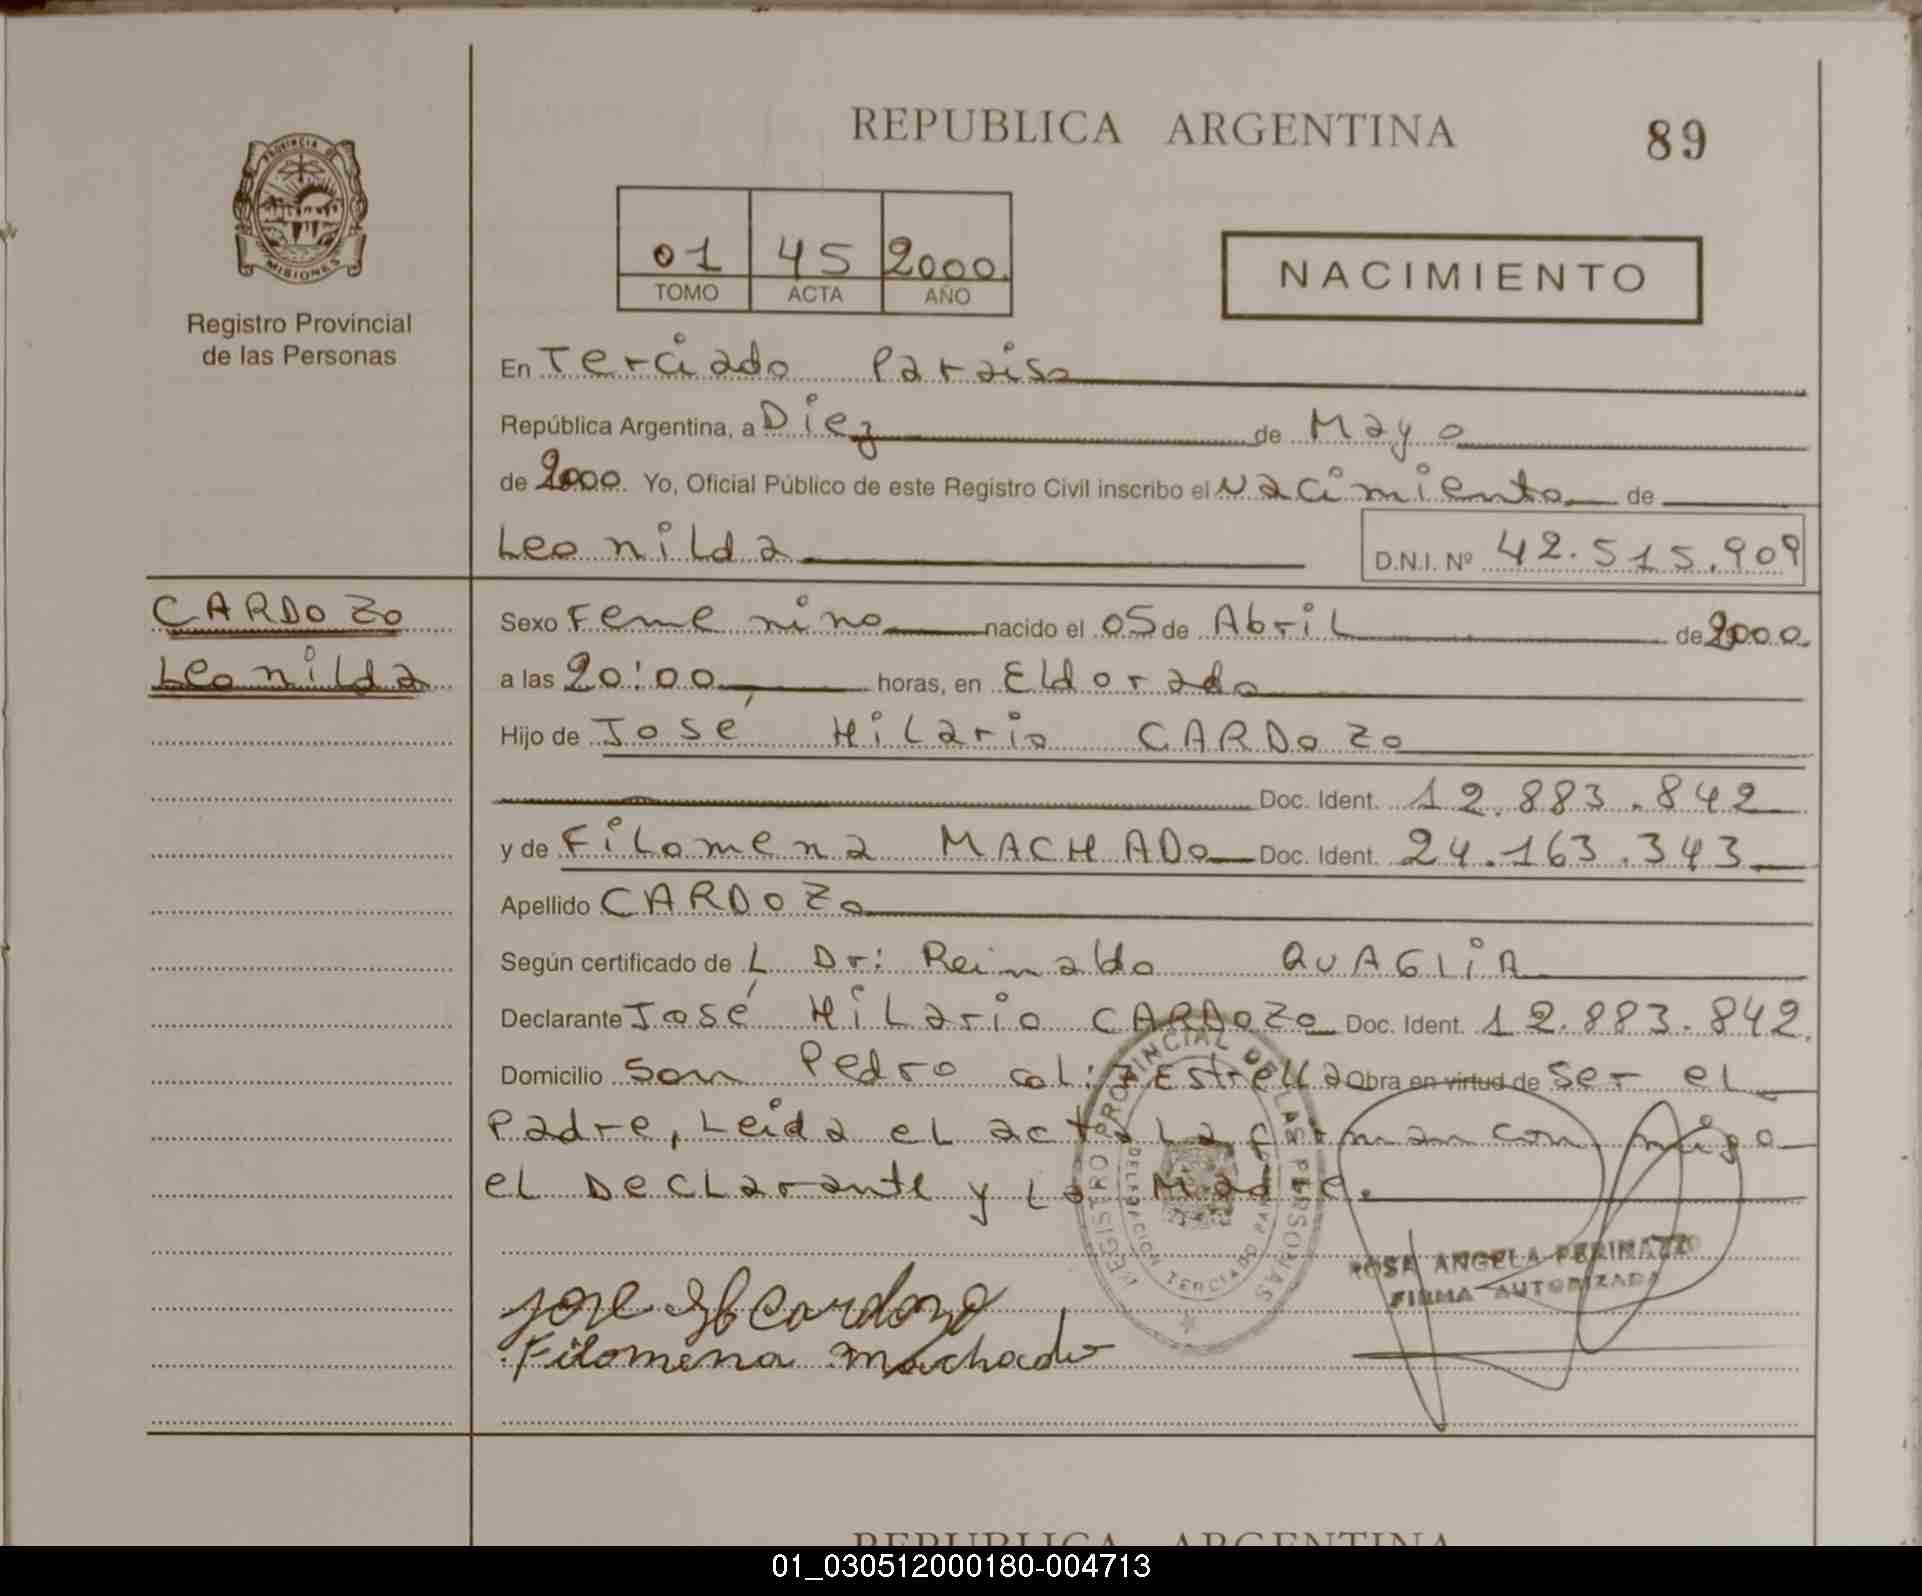 REPUBLICA ARGENTINA
89
PROVINCIA DE
MISIONES
Registro Provincial
de las Personas
01 45 2000
TOMO ACTA AÑO
NACIMIENTO
En Terciado Paraiso
República Argentina, a Diez de Mayo
de 2000 Yo, Oficial Público de este Registro Civil inscribo el Nacimiento de
Leonilda
D.N.I. Nº 42.515.909
CARDOZO
Leonilda
Sexo Femenino nacido el 05 de Abril de 2000
a las 20:00 horas, en Eldorado
Hijo de José Hilario CARDOZO
Doc. Ident. 12.883.842
y de Filomena MACHADO Doc. Ident. 24.163.343
Apellido CARDOZO
Según certificado de L Dr: Reinaldo QUAGLIA
Declarante José Hilario CARDOZO Doc. Ident. 12.883.842.
Domicilio San Pedro col: Estrella Obra en virtud de ser el
Padre, Leida el acta La firman conmigo
el Declarante y La Madre.
REGISTRO PROVINCIAL DE LAS PERSONAS
DELEGACION TERCIADO
ROSA ANGELA PERINAZZO
FIRMA AUTORIZADA
Jose H Cardozo
Filomena Machado
REPUBLICA ARGENTINA
01_030512000180-004713